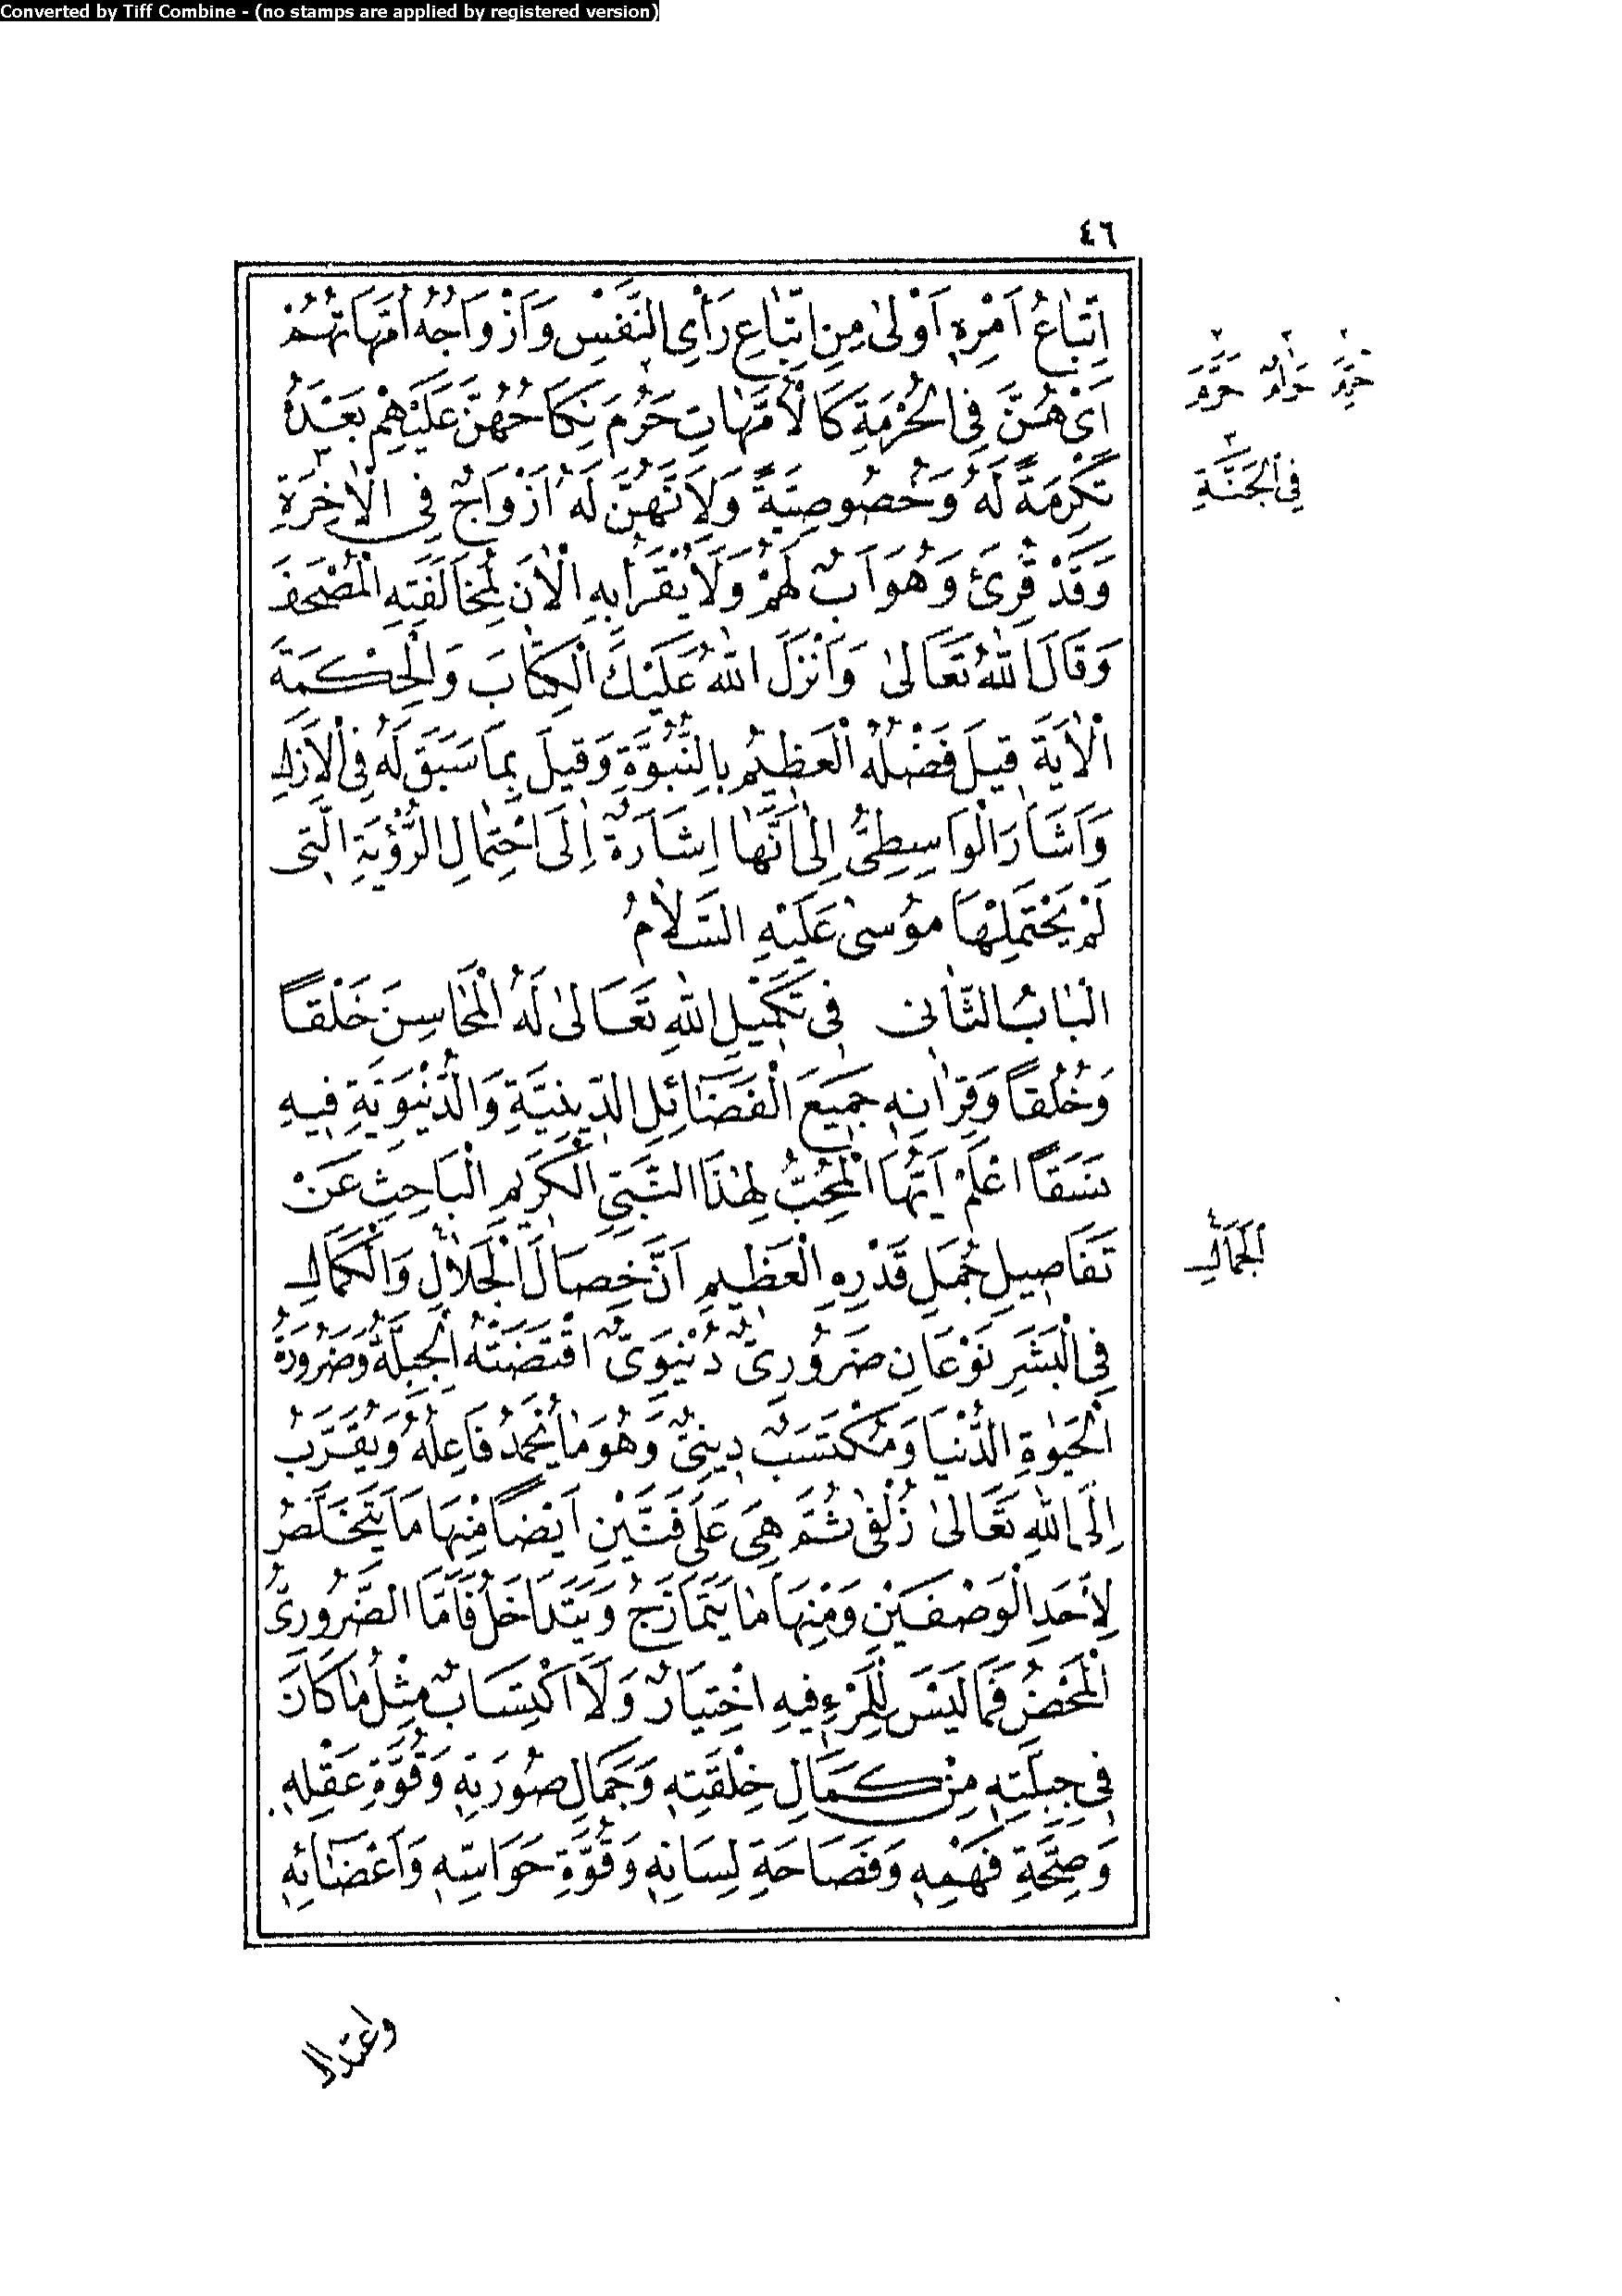 Converted by Tiff Combine - (no stamps are applied by registered version)
٤٦
اِتِّبَاعُ اَمْرِهِ اَوْلىٰ مِنِ اتِّبَاعِ رَأْىِ النَّفْسِ وَاَزْوَاجُهُ اُمَّهَاتُهُمْ
اَىْ هُنَّ فِى الْحُرْمَةِ كَالْاُمَّهَاتِ حَرُمَ نِكَاحُهُنَّ عَلَيْهِمْ بَعْدَهُ
تَكْرِمَةً لَهُ وَخُصُوصِيَّةً وَلِاَنَّهُنَّ لَهُ اَزْوَاجٌ فِى الْاٰخِرَةِ
وَقَدْ قُرِئَ وَهُوَ اَبٌ لَهُمْ وَلَا يُقْرَأُ بِهِ الْاٰنَ لِمُخَالَفَتِهِ الْمُصْحَفَ
وَقَالَ اللهُ تَعَالىٰ وَاَنْزَلَ اللهُ عَلَيْكَ الْكِتَابَ وَالْحِكْمَةَ
الْاٰيَةَ قِيلَ فَضْلُهُ الْعَظِيمُ بِالنُّبُوَّةِ وَقِيلَ بِمَا سَبَقَ لَهُ فِى الْاَزَلِ
وَاَشَارَ الْوَاسِطِىُّ اِلىٰ اَنَّهَا اِشَارَةٌ اِلَى احْتِمَالِ الرُّؤْيَةِ الَّتِى
لَمْ يَحْتَمِلْهَا مُوسىٰ عَلَيْهِ السَّلَامُ
الْبَابُ الثَّانِى فِى تَكْمِيلِ اللهِ تَعَالىٰ لَهُ الْمَحَاسِنَ خَلْقًا
وَخُلُقًا وَقِرَانِهِ جَمِيعَ الْفَضَائِلِ الدِّينِيَّةِ وَالدُّنْيَوِيَّةِ فِيهِ
نَسَقًا اعْلَمْ اَيُّهَا الْمُحِبُّ لِهٰذَا النَّبِىِّ الْكَرِيمِ الْبَاحِثِ عَنْ
تَفَاصِيلِ جُمَلِ قَدْرِهِ الْعَظِيمِ اَنَّ خِصَالَ الْجَلَالِ وَالْكَمَالِ
فِى الْبَشَرِ نَوْعَانِ ضَرُورِىٌّ دُنْيَوِىٌّ اقْتَضَتْهُ الْجِبِلَّةُ وَضَرُورَةُ
الْحَيٰوةِ الدُّنْيَا وَمُكْتَسَبٌ دِينِىٌّ وَهُوَ مَا يُحْمَدُ فَاعِلُهُ وَيُقَرِّبُ
اِلَى اللهِ تَعَالىٰ زُلْفىٰ ثُمَّ هِىَ عَلىٰ فَنَّيْنِ اَيْضًا مِنْهَا مَا يَتَخَلَّصُ
لِاَحَدِ الْوَصْفَيْنِ وَمِنْهَا مَا يَتَمَازَجُ وَيَتَدَاخَلُ فَاَمَّا الضَّرُورِىُّ
الْمَحْضُ فَمَا لَيْسَ لِلْمَرْءِ فِيهِ اخْتِيَارٌ وَلَا اكْتِسَابٌ مِثْلُ مَا كَانَ
فِى جِبِلَّتِهِ مِنْ كَمَالِ خِلْقَتِهِ وَجَمَالِ صُورَتِهِ وَقُوَّةِ عَقْلِهِ
وَصِحَّةِ فَهْمِهِ وَفَصَاحَةِ لِسَانِهِ وَقُوَّةِ حَوَاسِّهِ وَاَعْضَائِهِ
حَرَامٌ حَرَّمَ
فِى الْجَنَّةِ
الْجَمَالِ
واعتدال